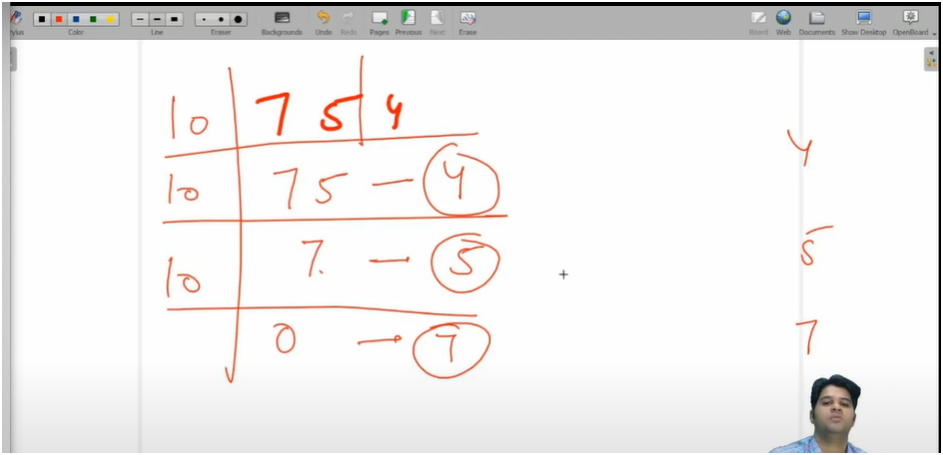 Stylus Color Line Eraser Backgrounds Undo Redo Pages Previous Next Erase Board Web Documents Show Desktop OpenBoard
10 7 5 4
10 75 — 4
10 7. — 5
0 — 7
4
5
7